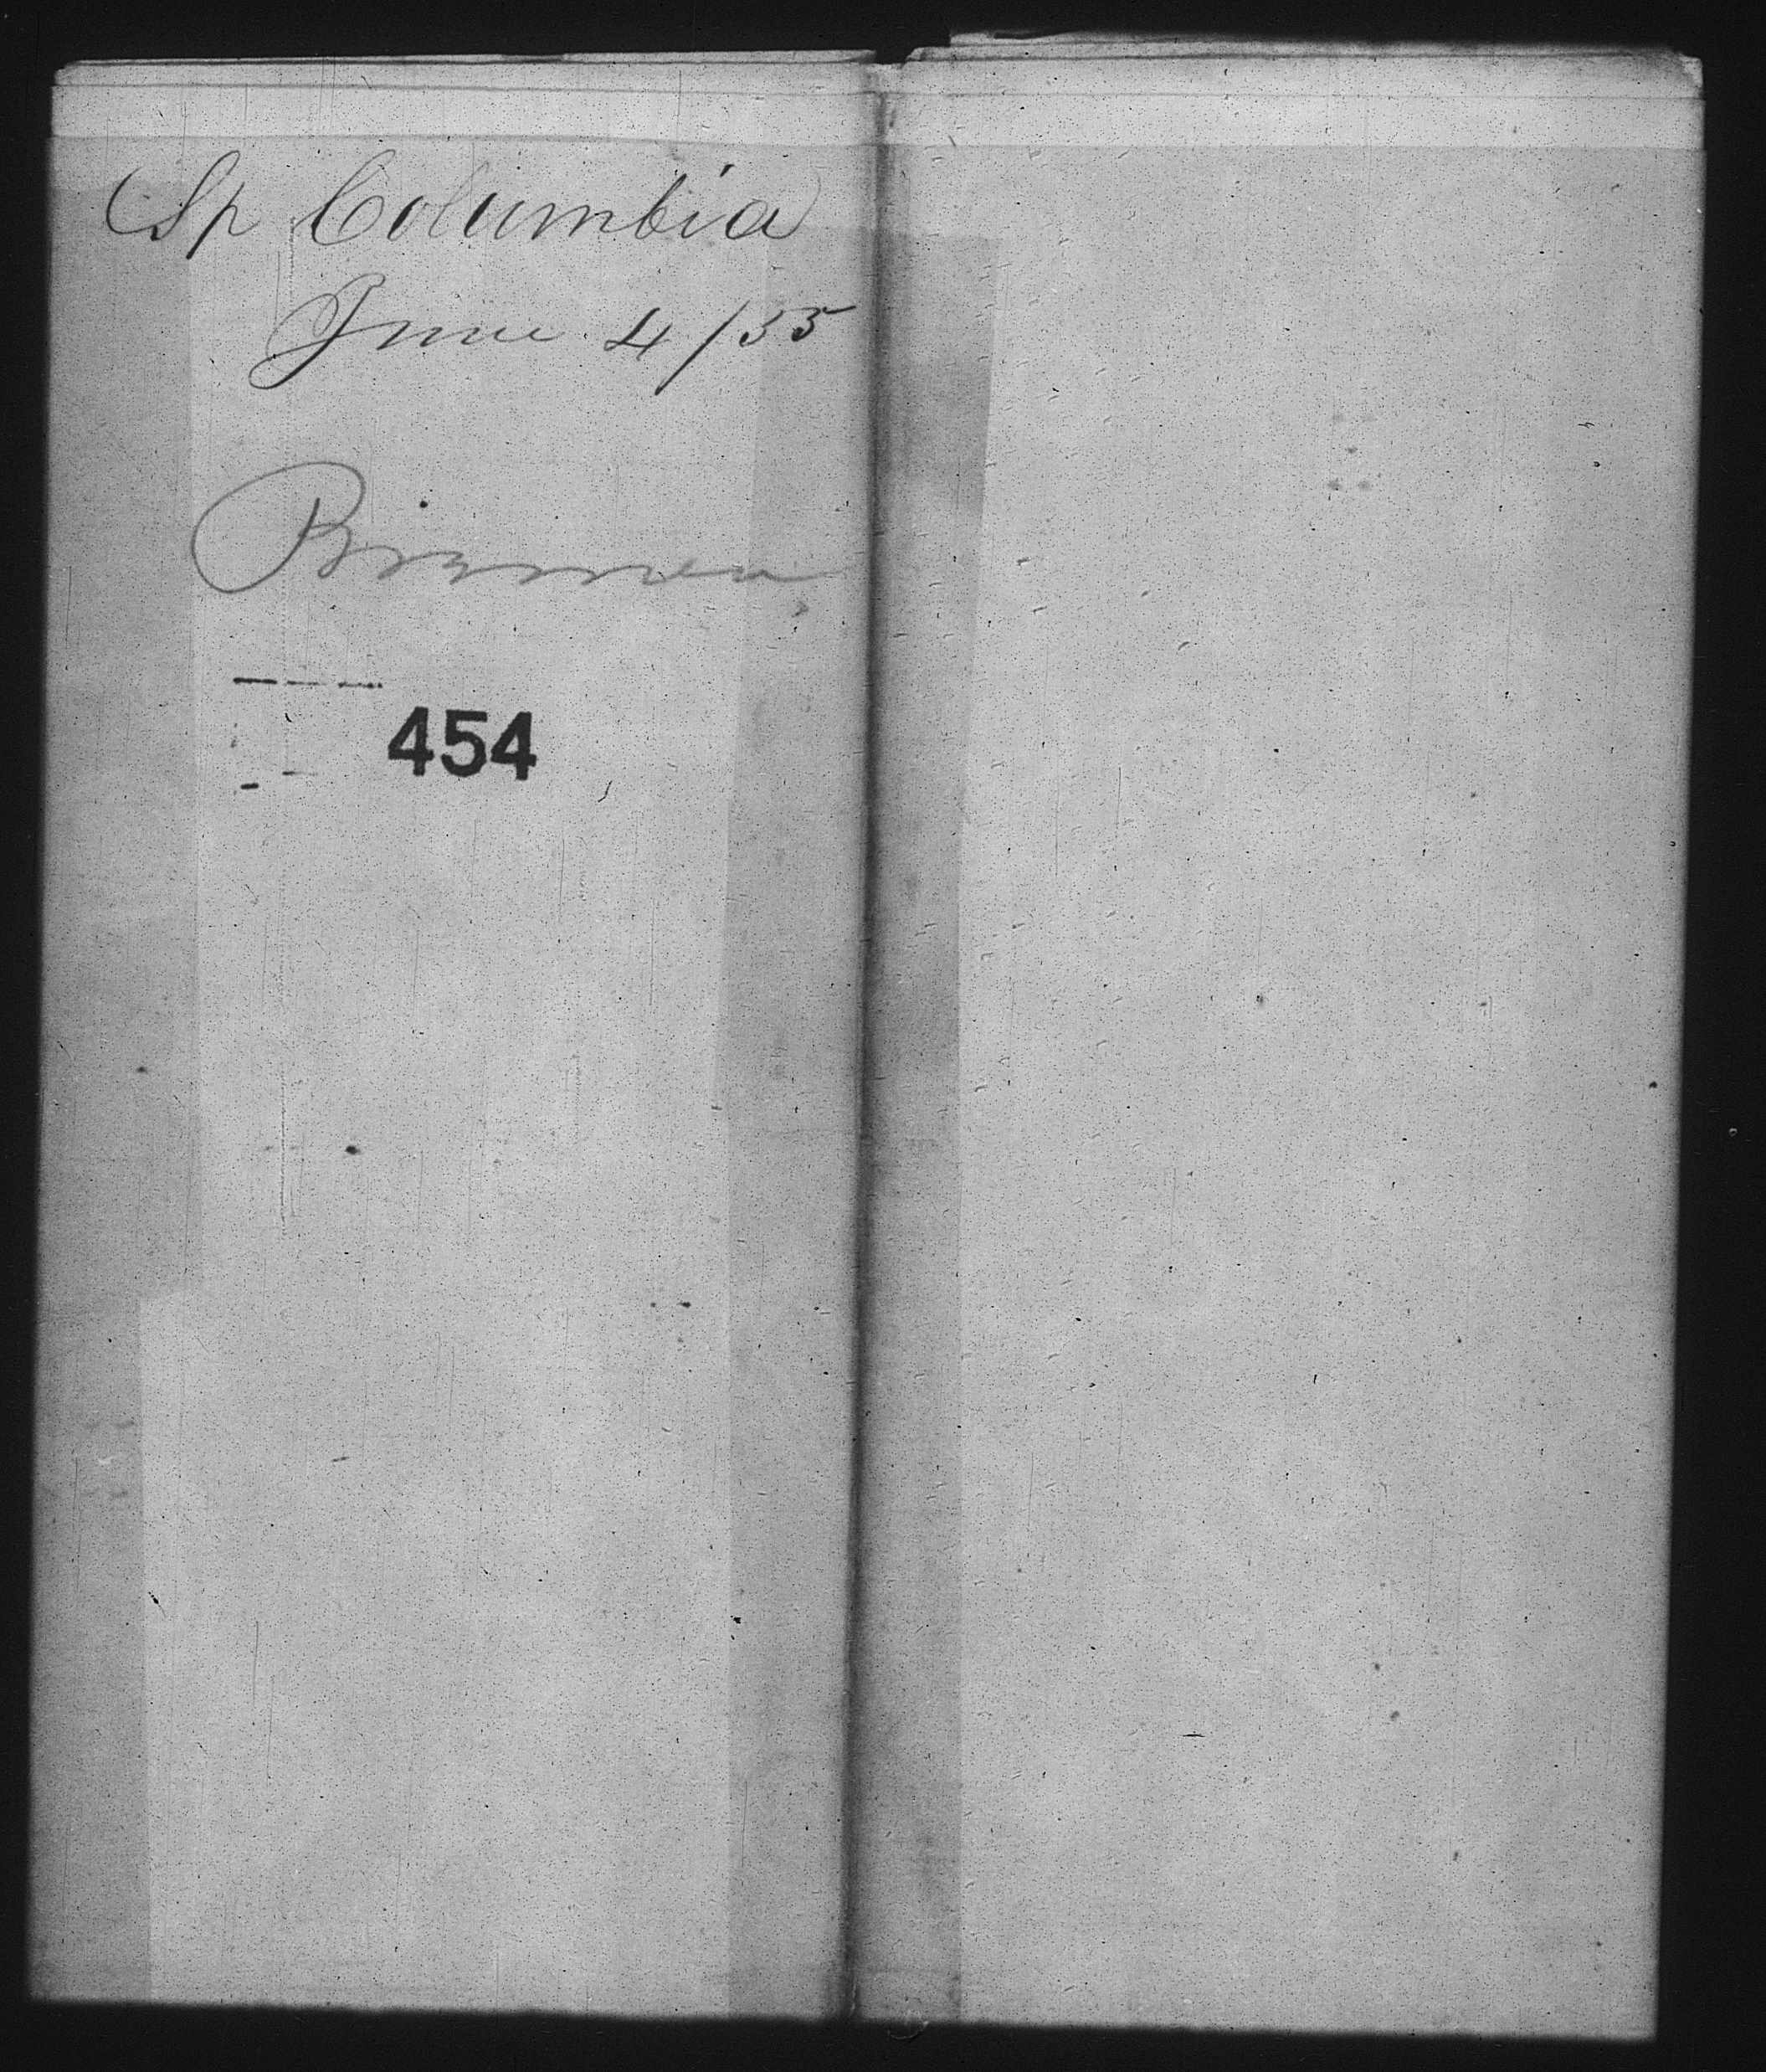 Sp Columbia
June 4/55
454